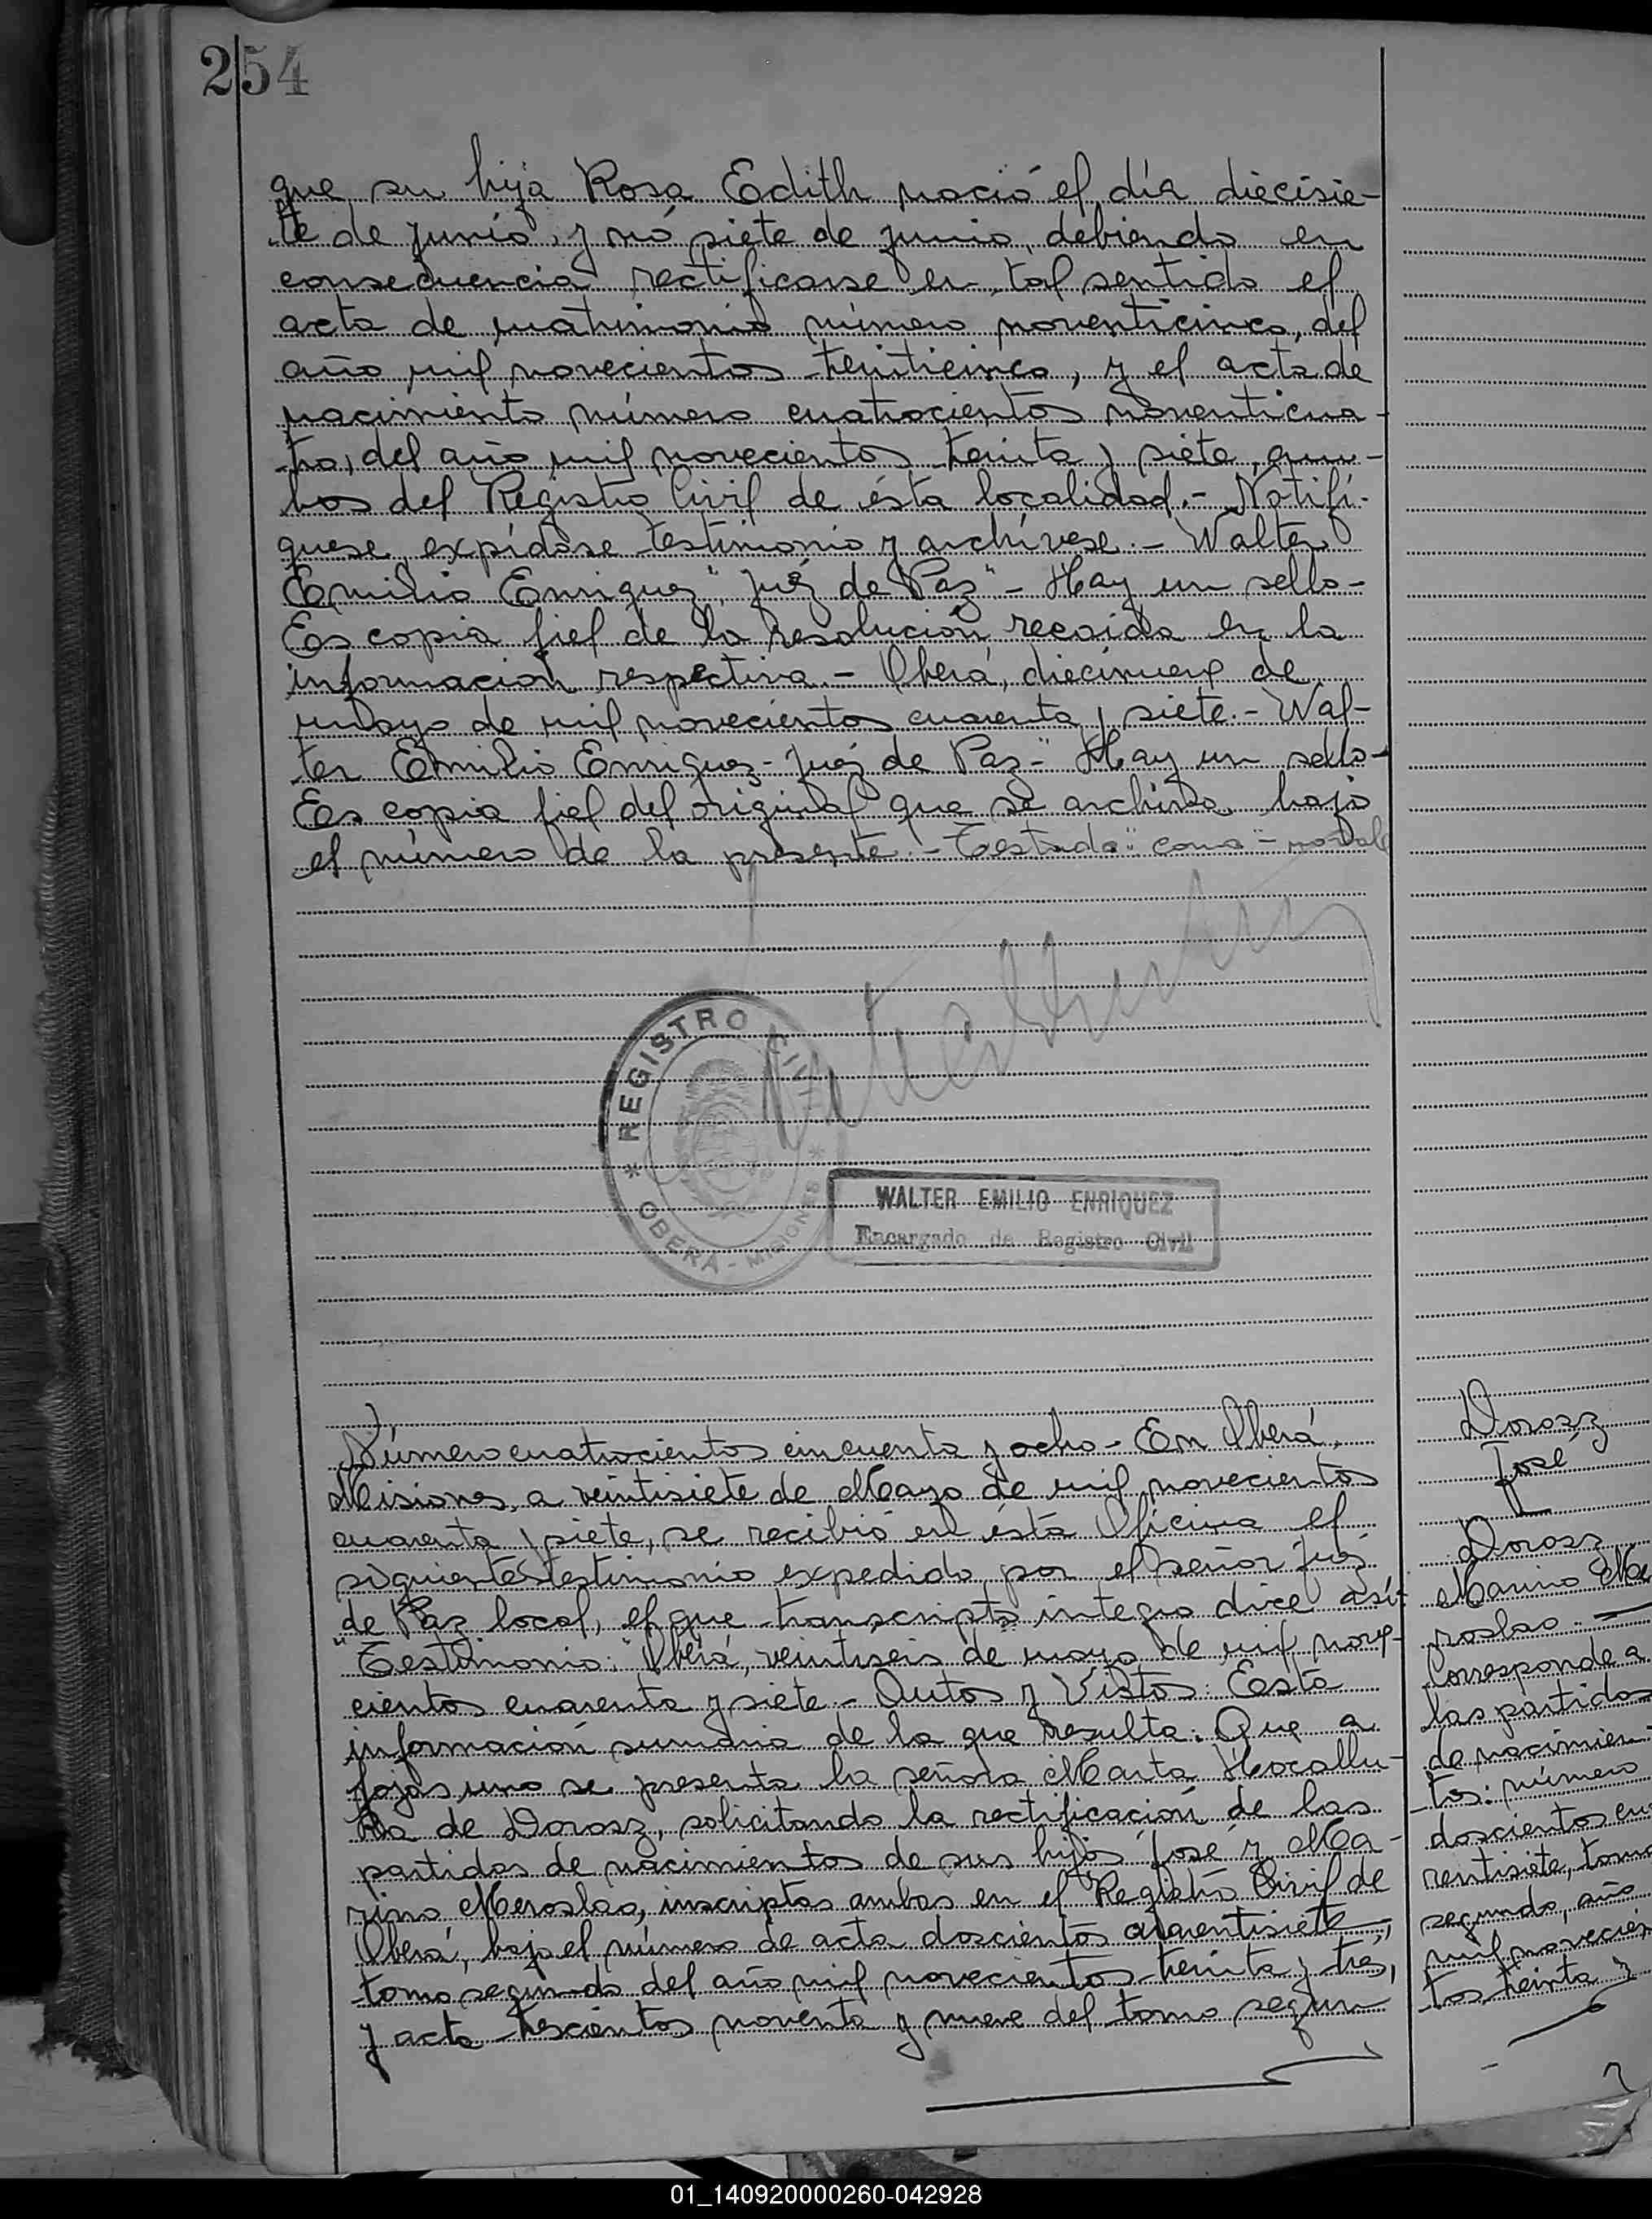 254
que su hija Rosa Edith nació el día diecisie-
te de junio, y nó siete de junio, debiendo en
consecuencia rectificarse en tal sentido el
acta de matrimonio número noventicinco, del
año mil novecientos treinticinco, y el acta de
nacimiento número cuatrocientos noventicua-
tro, del año mil novecientos treinta y siete, am-
bos del Registro Civil de ésta localidad.- Notifí-
quese, expídase testimonio y archívese.- Walter
Emilio Enriquez "Juéz de Paz" - Hay un sello-
Es copia fiel de la resolución recaida en la
información respectiva.- Oberá, diecinueve de
mayo de mil novecientos cuarenta y siete.- Wal-
ter Emilio Enriquez - Juéz de Paz - Hay un sello-
Es copia fiel del original que se archiva bajo
el número de la presente.- Testado: "como" - no vale
REGISTRO CIVIL
* OBERÁ - MISIONES *
WALTER EMILIO ENRIQUEZ
Encargado de Registro Civil
Número cuatrocientos cincuenta y ocho - En Oberá,
Misiones, a veintisiete de Mayo de mil novecientos
cuarenta y siete, se recibió en ésta Oficina el
siguiente testimonio expedido por el señor Juéz
de Paz local, el que transcripto íntegro dice así:
"Testimonio: "Oberá, veintiseis de mayo de mil nove-
cientos cuarenta y siete - Autos y Vistos: Esta
información sumaria de la que resulta: Que a
fojas uno se presenta la señora Marta
de Dorosz, solicitando la rectificación de las
partidas de nacimientos de sus hijos José y Ma-
rino Meroslao, inscriptos ambos en el Registro Civil de
Oberá, bajo el número de acta doscientos cuarentisiete,
tomo segundo del año mil novecientos treinta y trés,
y acta trescientos noventa y nueve del tomo segun
Dorosz
José
y
Dorosz
Marino Me
roslao.-
Corresponde a
las partidas
de nacimien
tos: número
doscientos cua
rentisiete, tomo
segundo, año
mil novecien
tos treinta y